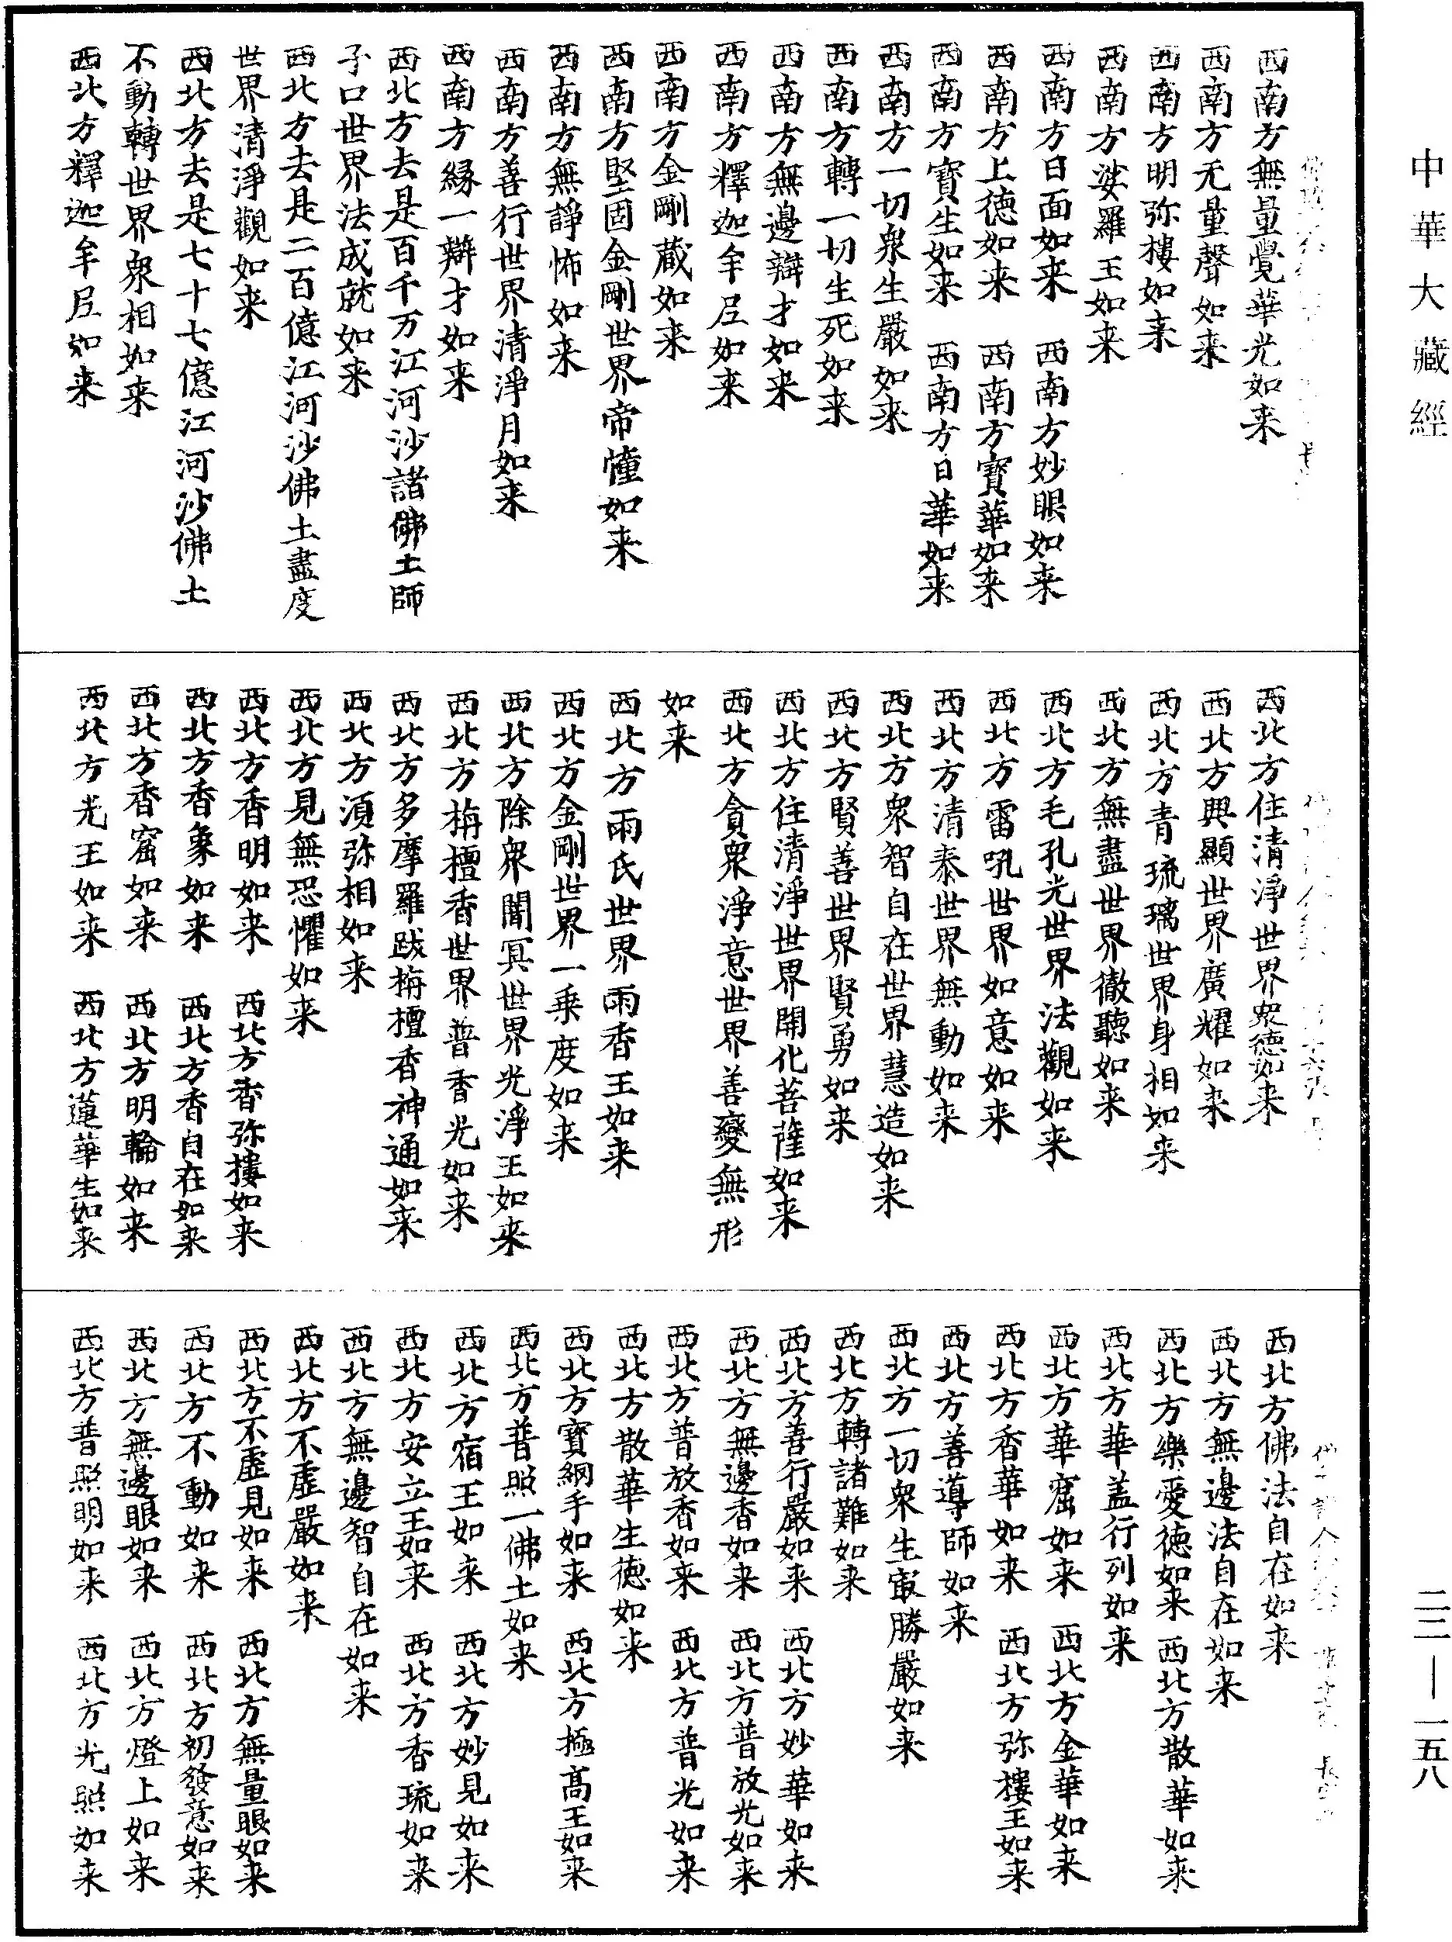 中華大藏經
西南方無量覺華光如来
西南方无量聲如来
西南方明弥樓如来
西南方娑羅王如来
西南方日面如来　西南方妙眼如来
西南方上德如来　西南方寶華如来
西南方寶生如来　西南方日華如来
西南方一切衆生嚴如来
西南方轉一切生死如来
西南方無邊辯才如来
西南方釋迦牟尼如来
西南方金剛藏如来
西南方堅固金剛世界帝幢如来
西南方無諍怖如来
西南方善行世界清淨月如来
西南方緣一辯才如来
西北方去是百千万江河沙諸佛土師
子口世界法成就如来
西北方去是二百億江河沙佛土盡度
世界清淨觀如来
西北方去是七十七億江河沙佛土
不動轉世界衆相如来
西北方釋迦牟尼如来
西北方住清淨世界衆德如来
西北方興顯世界廣耀如来
西北方青琉璃世界身相如来
西北方無盡世界徹聽如来
西北方毛孔光世界法觀如来
西北方雷吼世界如意如来
西北方清泰世界無動如来
西北方衆智自在世界慧造如来
西北方賢善世界賢勇如来
西北方住清淨世界開化菩薩如来
西北方貪衆淨意世界善變無形
如来
西北方雨氏世界雨香王如来
西北方金剛世界一乗度如来
西北方除衆闇冥世界光淨王如来
西北方栴檀香世界普香光如来
西北方多摩羅跋栴檀香神通如来
西北方湏弥相如来
西北方見無恐懼如来
西北方香明如来　西北方香弥樓如来
西北方香象如来　西北方香自在如来
西北方香窟如来　西北方明輪如来
西北方光王如来　西北方蓮華生如来
西北方佛法自在如来
西北方無邊法自在如来
西北方樂愛德如来　西北方散華如来
西北方華盖行列如来
西北方華窟如来　西北方金華如来
西北方香華如来　西北方弥樓王如来
西北方善導師如来
西北方一切衆生冣勝嚴如来
西北方轉諸難如来
西北方善行嚴如来　西北方妙華如来
西北方無邊香如来　西北方普放光如来
西北方普放香如来　西北方普光如来
西北方散華生德如来
西北方寶網手如来　西北方極高王如来
西北方普照一佛土如来
西北方宿王如来　西北方妙見如来
西北方安立王如来　西北方香琉如来
西北方無邊智自在如来
西北方不虛嚴如来
西北方不虛見如来　西北方無量眼如来
西北方不動如来　西北方初發意如来
西北方無邊眼如来　西北方燈上如来
西北方普照明如来　西北方光照如来
二二—一五八